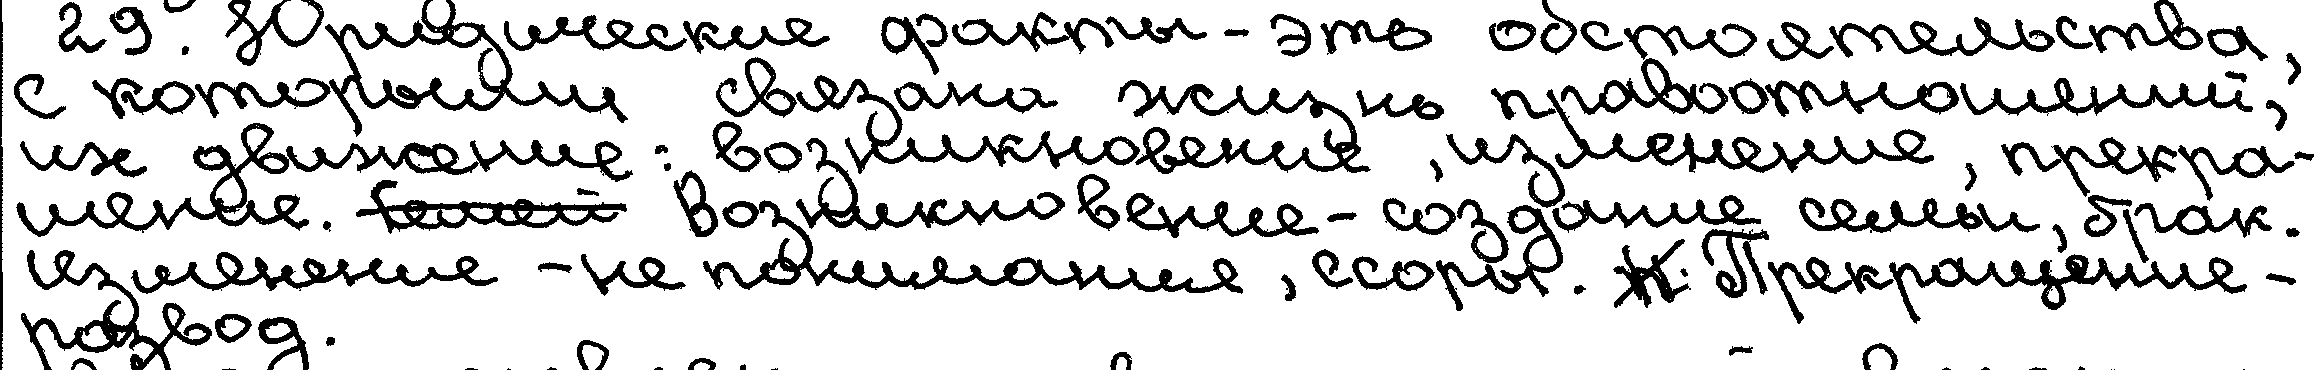 29. Юридические факты - это обстоятельства,
с которыми связана жизнь правоотношений,
их движение: возникновение, изменение, прекра-
щение. Возникновение - создание семьи, брак.
изменение - не понимания, ссоры. Прекращение -
развод.